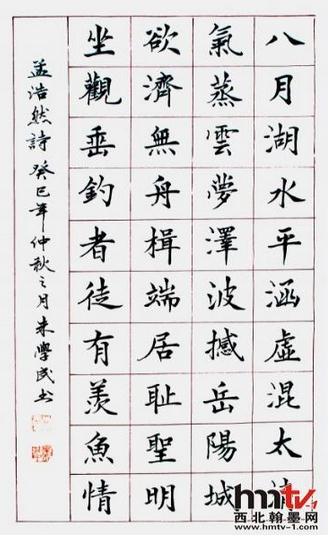 八月湖水平涵虛混太清
氣蒸雲夢澤波撼岳陽城
欲濟無舟楫端居耻聖明
坐觀垂釣者徒有羨魚情
孟浩然詩 癸巳年仲秋之月朱學民书
hmtv
西北翰墨网
www.hmtv-1.com